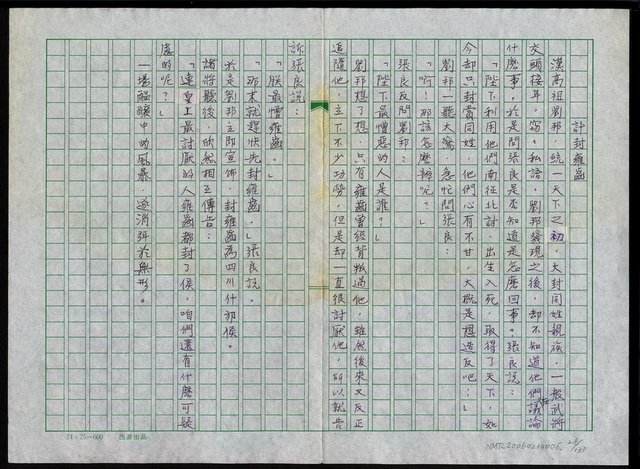 計封雍齒
漢高祖劉邦，統一天下之初，大封同姓親族，一般武將
交頭接耳，竊竊私語，劉邦發現之後，却不知道他們議論
什麼事，於是問張良是否知道是怎麼回事。張良說：
「陛下利用他們南征北討，出生入死，取得了天下，如
今却只封賞同姓，他們心有不甘，大概是想造反吧！」
劉邦一聽大驚，急忙問張良：
「啊！那該怎麼辦呢？」
張良反問劉邦：
「陛下最憎惡的人是誰？」
劉邦想了想，只有雍齒曾經背叛過他，雖然後來又反正
追隨他，立下不少功勞，但是却一直很討厭他，所以就告
訴張良說：
「朕最憎雍齒。」
「那末就趕快先封雍齒。」張良說。
於是劉邦立即宣佈，封雍齒為四川什邡侯。
諸將聽後，欣然相互傳告：
「連皇上最討厭的人雍齒都封了侯，咱們還有什麼可疑
慮的呢？」
一場醞釀中的風暴，遂消弭於無形。
24×25=600
NMTL20060210006